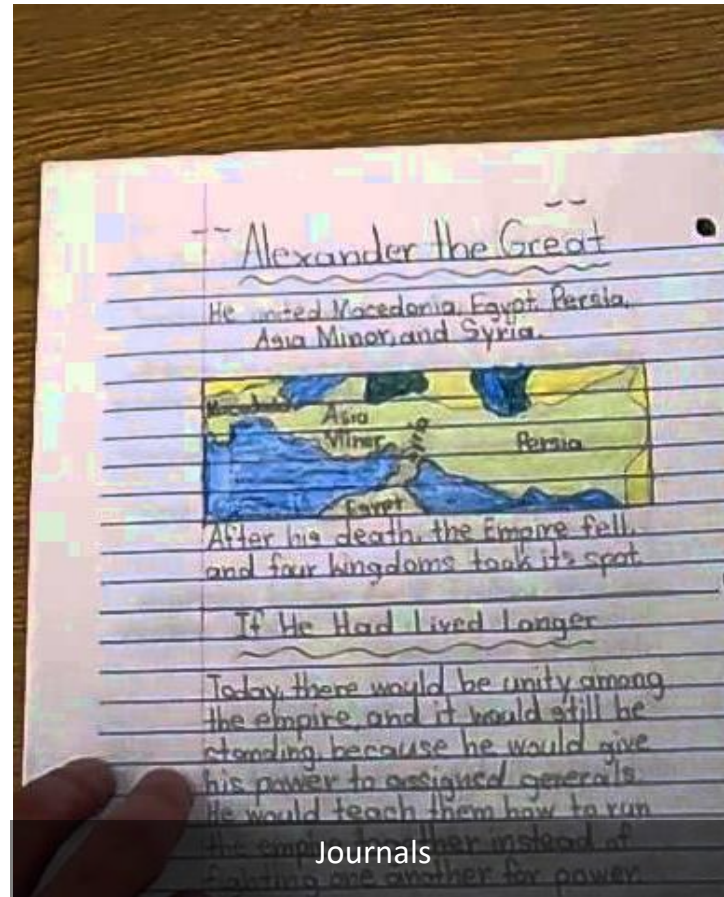 Alexander the Great
He united Macedonia, Egypt, Persia,
Asia Minor, and Syria.
Macedonia
Asia
Minor
Syria
Persia
Egypt
After his death, the Empire fell,
and four kingdoms took its spot
If He Had Lived Longer
Today, there would be unity among
the empire, and it would still be
standing, because he would give
his power to assigned generals.
He would teach them how to run
the empire together instead of
fighting one another for power.
Journals